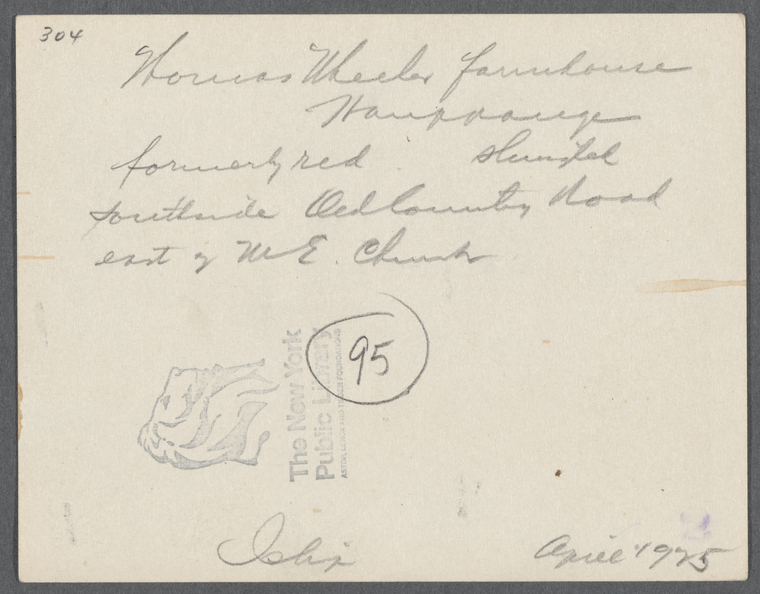 304
Thomas Wheeler farmhouse
Hauppauge
formerly red shingled
southside Old Country Road
east of M E. Church
95
The New York
Public Library
ASTOR, LENOX AND TILDEN FOUNDATIONS
Islip
April 1925